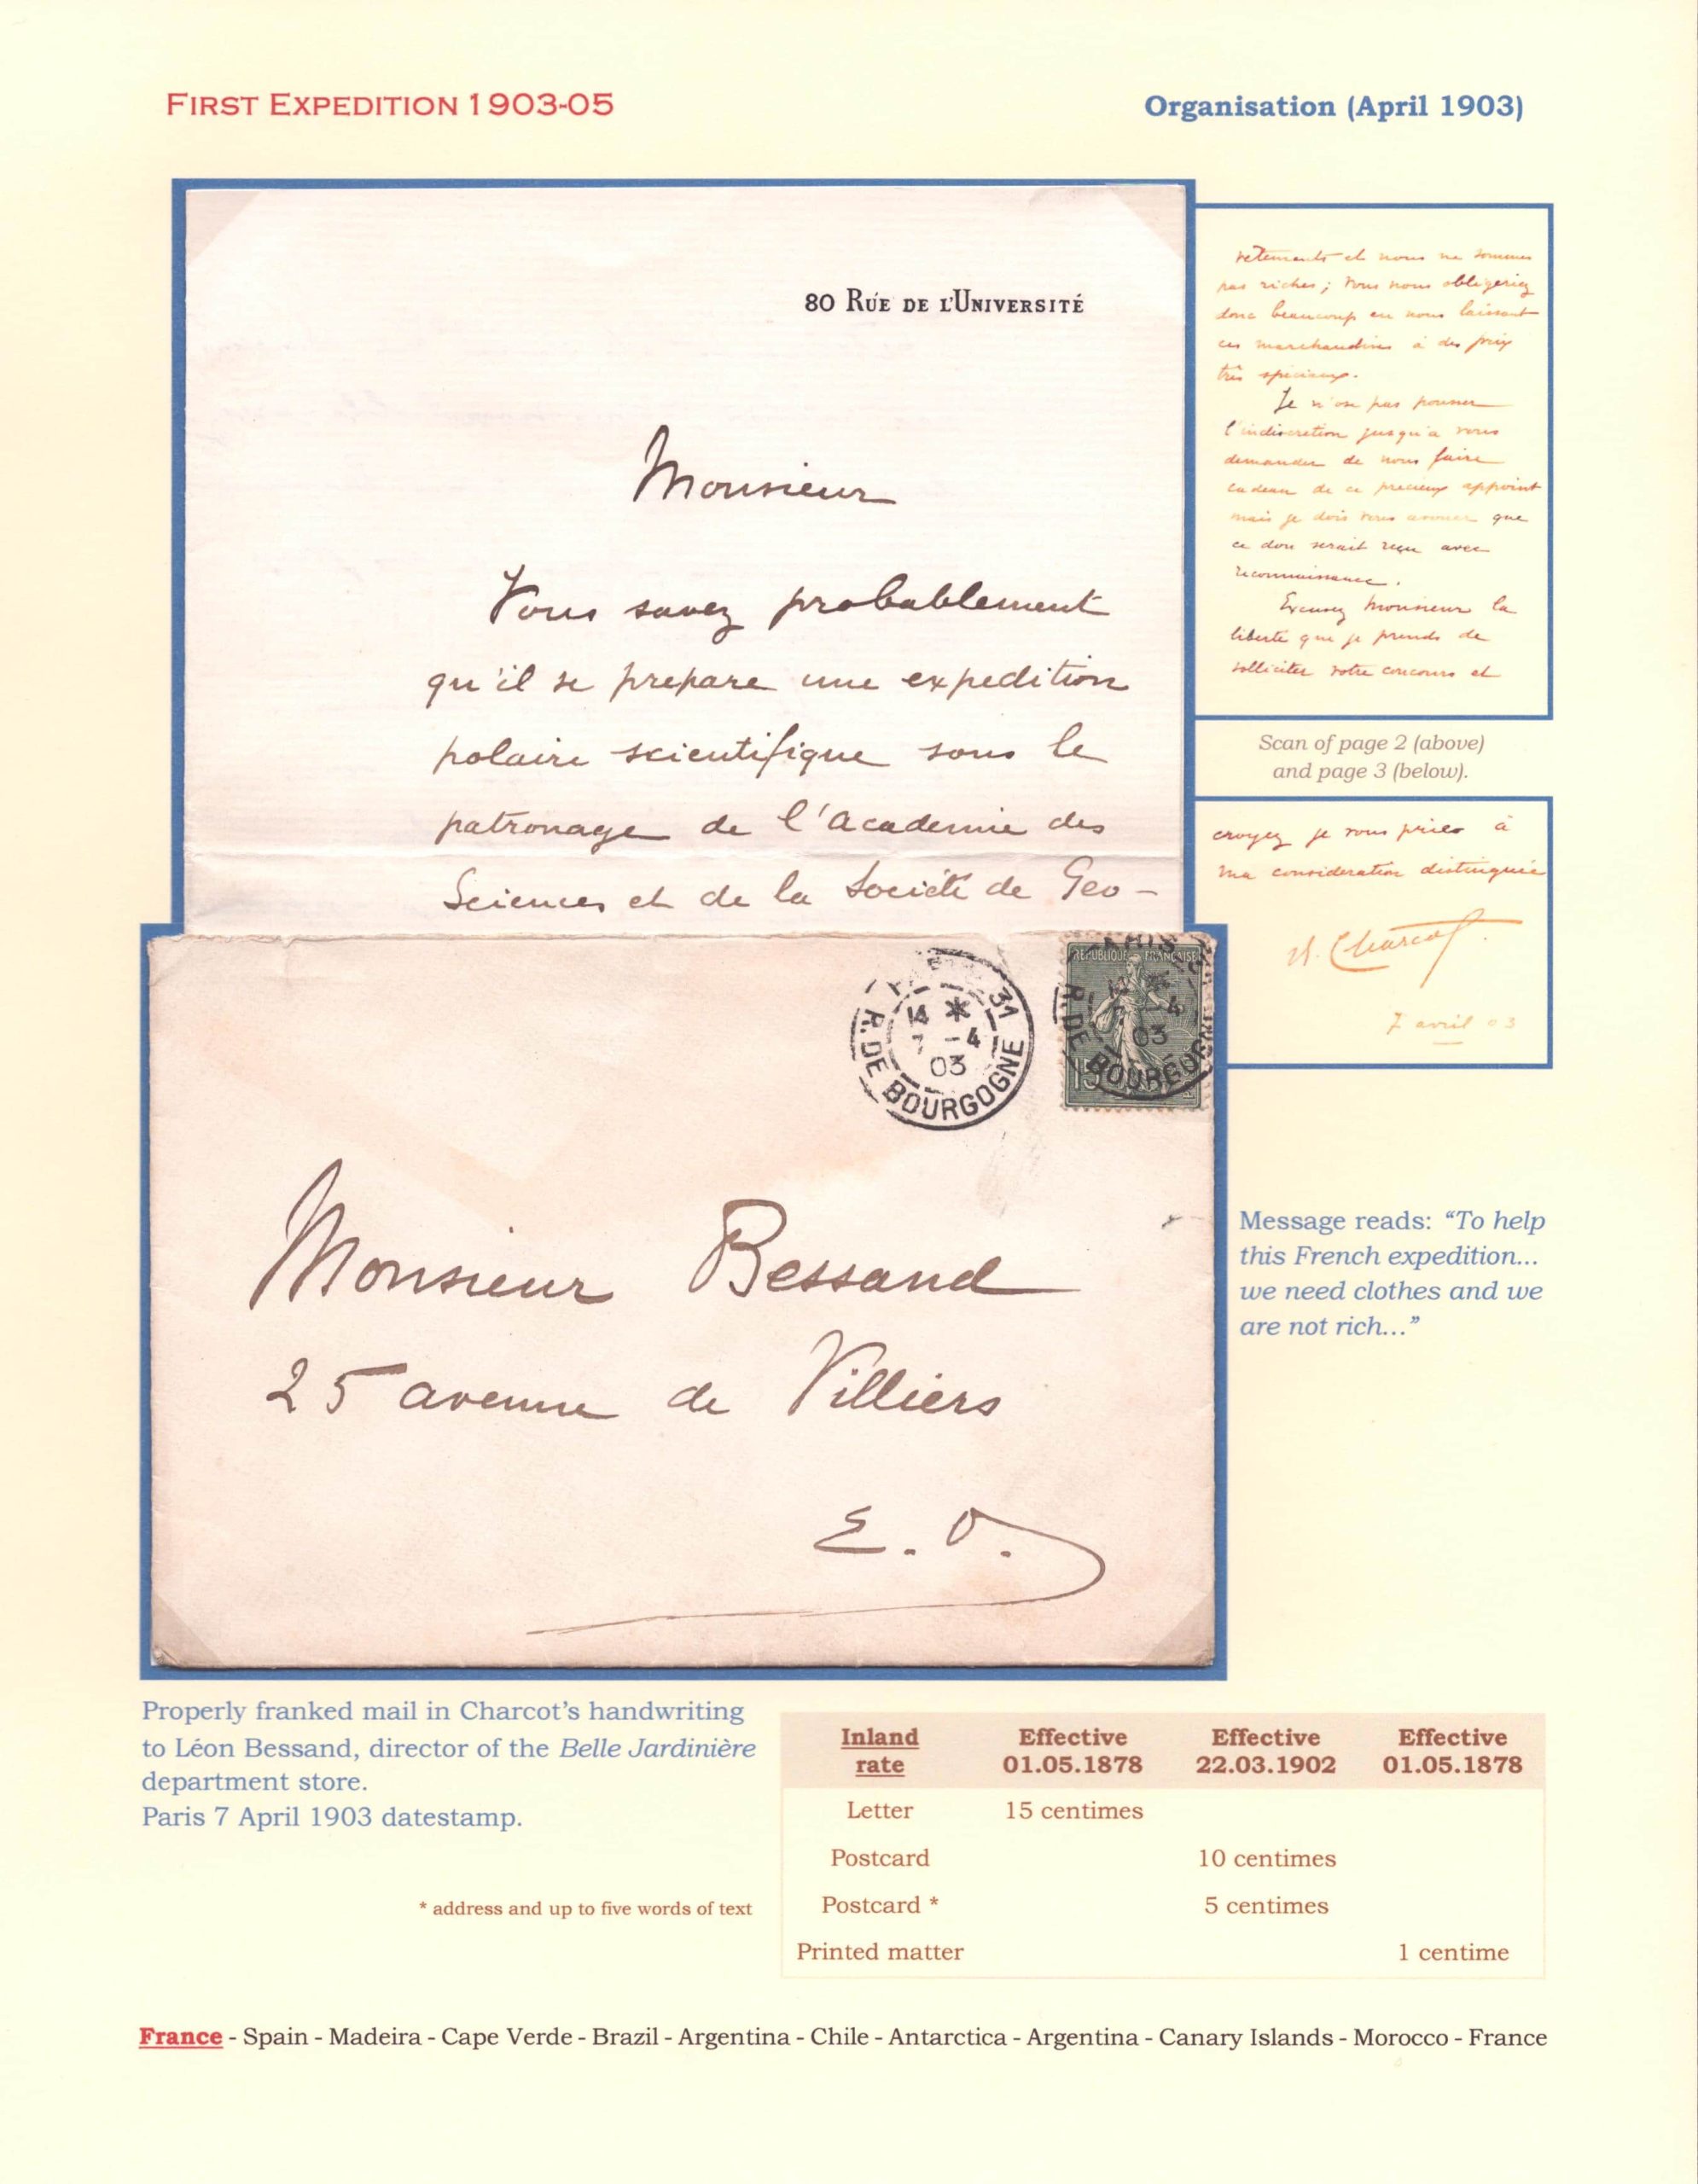 FIRST EXPEDITION 1903-05
Organisation (April 1903)
80 RUE DE L'UNIVERSITÉ
Monsieur
Vous savez probablement
qu'il se prepare une expedition
polaire scientifique sous le
patronage de l'Academie des
Sciences et de la Societé de Geo-
vetements et nous ne sommes
pas riches; vous nous obligeriez
donc beaucoup en nous laissant
ces marchandises à des prix
très speciaux.
Je n'ose pas pousser
l'indiscretion jusqu'a vous
demander de nous faire
cadeau de ce precieux appoint
mais je dois vous avouer que
ce don serait reçu avec
reconnaissance.
Excusez Monsieur la
liberté que je prends de
solliciter votre concours et
Scan of page 2 (above)
and page 3 (below).
croyez je vous prie à
ma consideration distinguée
Charcot
7 avril 03
PARIS 31
14 *
7 - 4
03
R. DE BOURGOGNE
REPUBLIQUE FRANÇAISE
PARIS
4
03
R. DE BOURGOGNE
15
Monsieur Bessand
25 avenue de Villiers
E. V.
Message reads: “To help
this French expedition...
we need clothes and we
are not rich...”
Properly franked mail in Charcot’s handwriting
to Léon Bessand, director of the Belle Jardinière
department store.
Paris 7 April 1903 datestamp.
* address and up to five words of text
Inland rate Effective 01.05.1878 Effective 22.03.1902 Effective 01.05.1878
Letter 15 centimes
Postcard 10 centimes
Postcard * 5 centimes
Printed matter 1 centime
France - Spain - Madeira - Cape Verde - Brazil - Argentina - Chile - Antarctica - Argentina - Canary Islands - Morocco - France